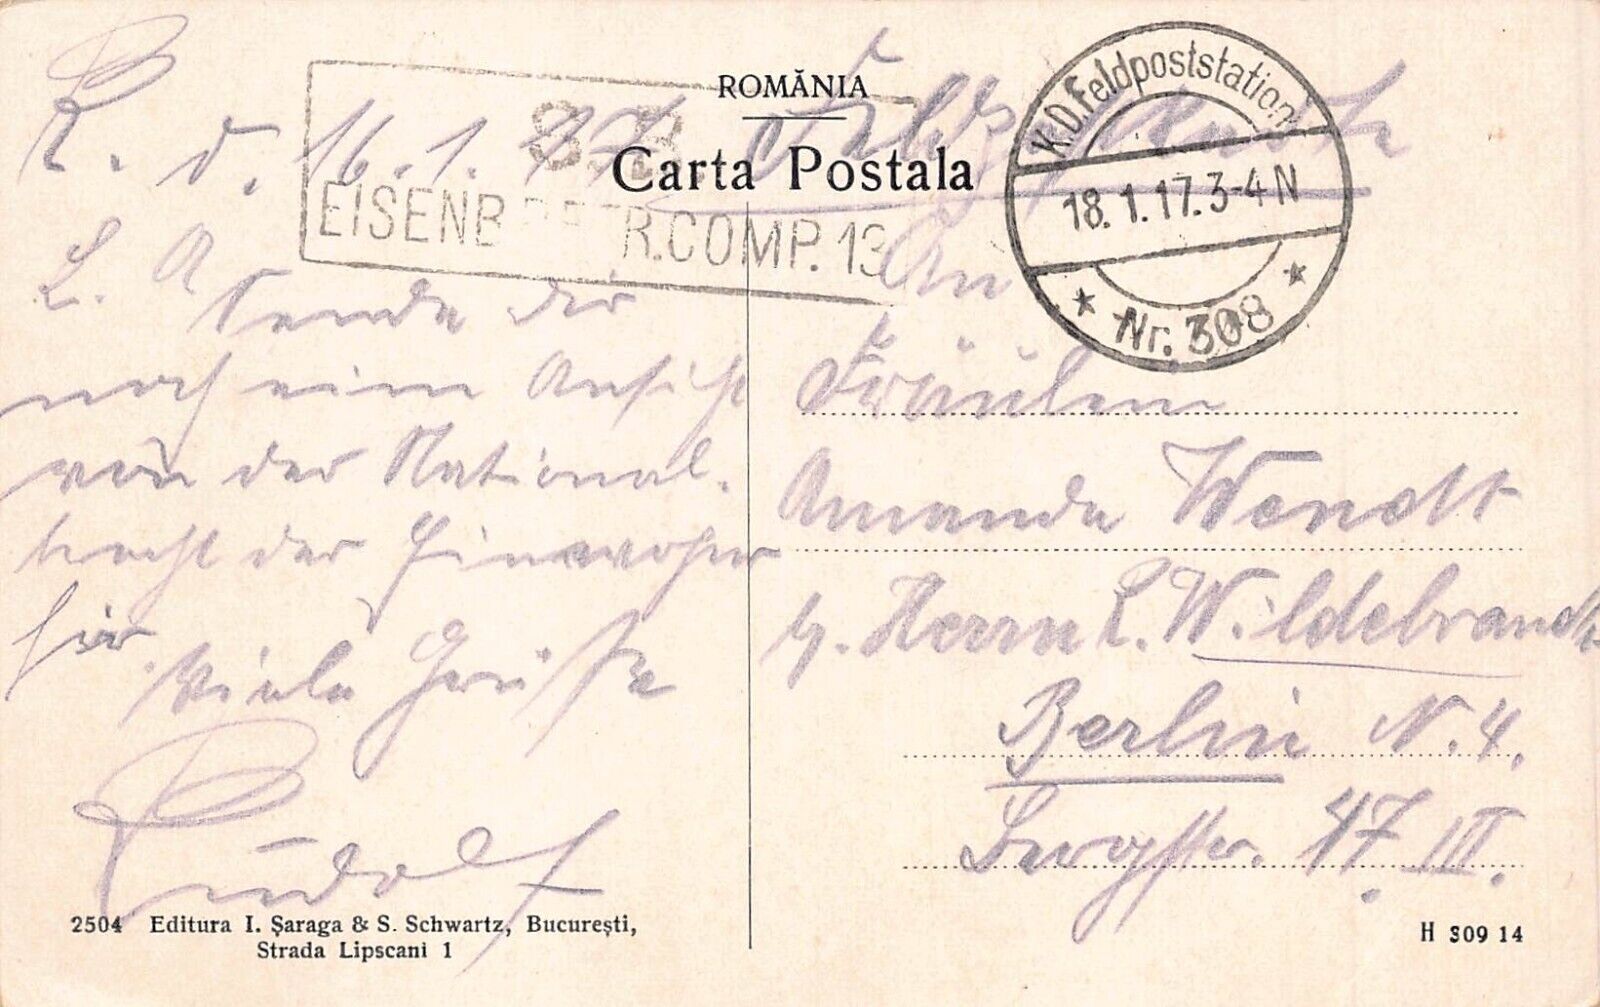 ROMÂNIA
Carta Postala
S.B.
EISENB. BETR. COMP. 13
K.D. Feldpoststation
18.1.17. 3-4 N
* Nr. 308 *
R. d. 16.1.17.
L. A.
Sende dir
noch eine Ansicht
von der National-
tracht der Einwoher
hir
Viele Grüße
Rudolf
An
Fräulein
Amanda Wendt
b/. Herrn L. Wildebrandt
Berlin N. 4.
47. III.
2504 Editura I. Șaraga & S. Schwartz, București,
Strada Lipscani 1
H 309 14